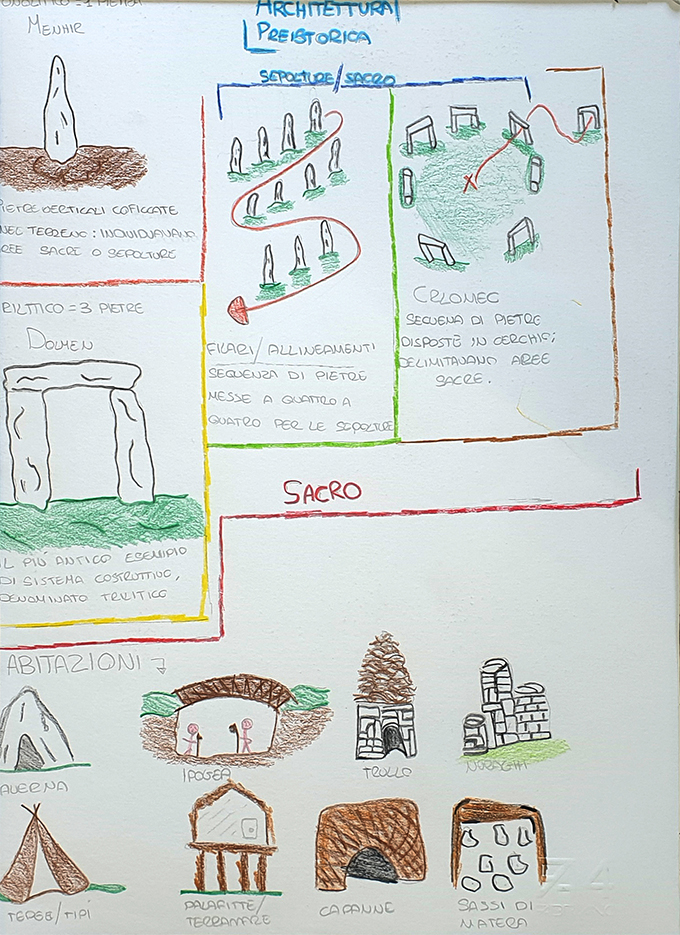 ARCHITETTURA
PREISTORICA
SEPOLTURE/SACRO
MONOLITICO = 1 PIETRA
MENHIR
PIETRE VERTICALI CONFICCATE
NEL TERRENO: INDIVIDUAVANO
AREE SACRE O SEPOLTURE
RILITICO = 3 PIETRE
DOLMEN
IL PIÙ ANTICO ESEMPIO
DI SISTEMA COSTRUTTIVO,
DENOMINATO TRILITICO
FILARI/ALLINEAMENTI
SEQUENZA DI PIETRE
MESSE A QUATTRO A
QUATTRO PER LE SEPOLTURE
CRLOMEC
SEQUENA DI PIETRE
DISPOSTE IN CERCHIO;
DELIMITAVANO AREE
SACRE.
SACRO
ABITAZIONI
AVERNA
IPOGEA
TRULLO
NURAGHI
TEPEE/TIPI
PALAFITTE/
TERRAMARE
CAPANNE
SASSI DI
MATERA